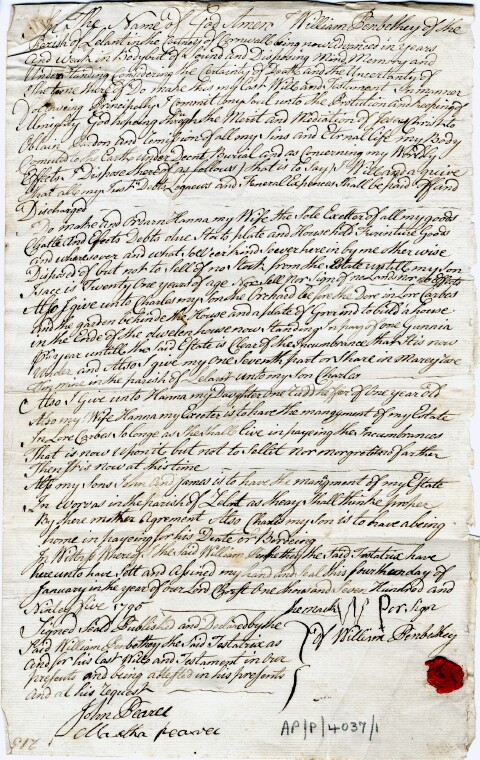 In The Name of God Amen William Penbethey of the
Parish of Lelant in the County of Cornwall being now advanced in years
and weak in Body but of Sound and Disposing Mind Memory and
Understanding Considering the Certainty of Death and the Uncertanty of
the time thereof Do make this my Last Will and Testament In manner
following Principally I Commit my Soul unto the Protection and keeping of
Almighty God hopeing through the Merit and Mediation of Jesus Christ to
Obtain Pardon and Remission of all my Sins and Eternal Life my Body
Commited to the Earth Under Decent Burial and as Concerning my Worldly
Effects I Dispose thereof as follows that is to Say I Will and require
that all my Just Debts Legaces and Funeral Expences Shall be paid off and
Discharged
I Do make and ordain Hanna my Wife the Sole Exetter of all my goods
Chattle and Efects Debts due Store plate and Household Furinture Goods
and wharesoever and what Soever kind Soever here in by me other wise
Disposd of but not to Sell of no Stock from the Estate uptill my Son
Isace is Twenty One years of age Nor Sell nor Sign of no Lands nor Effects
Also I give unto Charles my Son the Orchard before the Dore in Lore Carbes
and the garden behinde the House and a plate of Ground to build a house
in the Ende of the dwelen house now standing In pay of one Gunnia
per year untill the Said Estate is Clear of the Incumbrance that It is now
Under and Also I give my One Seventh part or Share in
mine in the parish of Lelant unto my Son Charles
Also I Give unto Hanna my Daughter One of One year Old
Also my Wife Hanna my Exetter is to have the mangment of my Estate
In Lore Carbes So longe as She Shall live in payeing the Incumbrances
That is now upon it but not to Sell it nor morgret no farther
Then it is now at this time
Also my Sons John and James is to have the mangment of my Estate
In in the parish of Lelant as theay Shall think proper
By there mother Agrement Also Charles my Son is to have a being
home in payeing for his Diate or Bordeing
In Witness Whereof the Said William Penbethey the Said Testatrix have
hereunto have Sett and asined my hand and Seal this fourtheen day of
January in the year of our Lord Christ One thousand Seven Hundred and
Ninety five 1795
Signed Seald Published and Declared by the
Said William Penbethey the Said Testatrix as
and for his Last Will and Testament in our
presents and being attested in his presents
and at his Request
the mark W P or Sign
of William Penbethey
John Pearce
Martha pearce
AP/P/4037/1
215